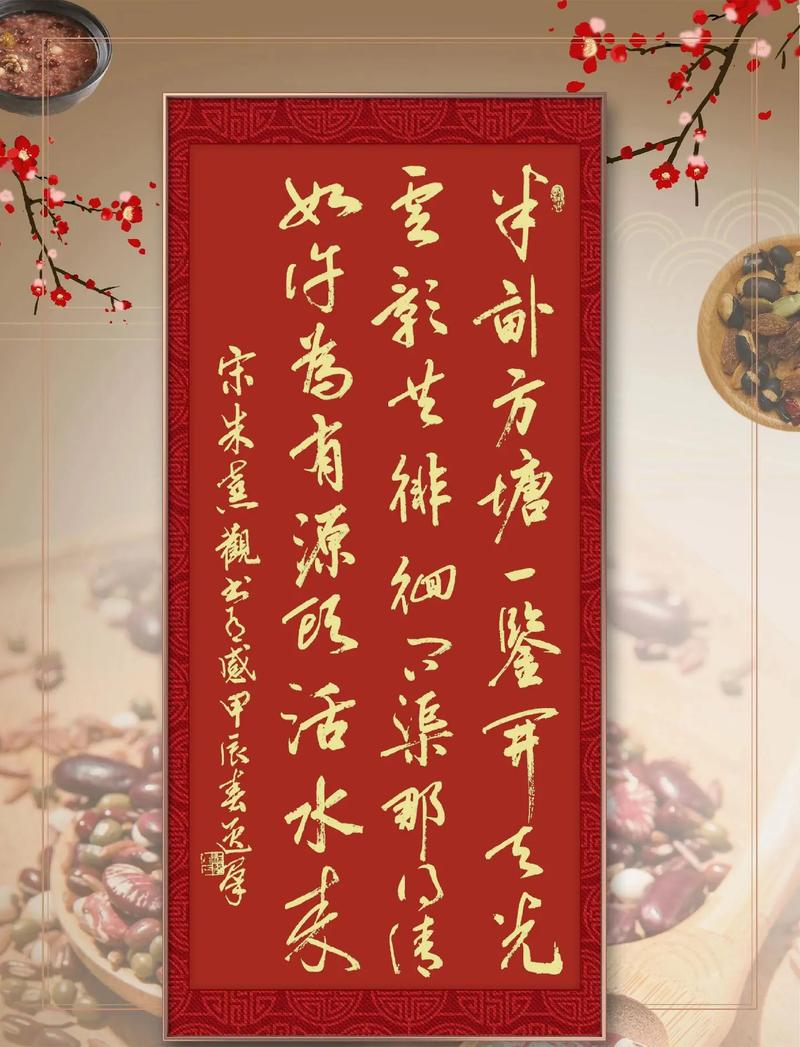 半畝方塘一鑒開天光
雲影共徘徊問渠那得清
如許為有源頭活水来
宋朱熹觀书有感甲辰春